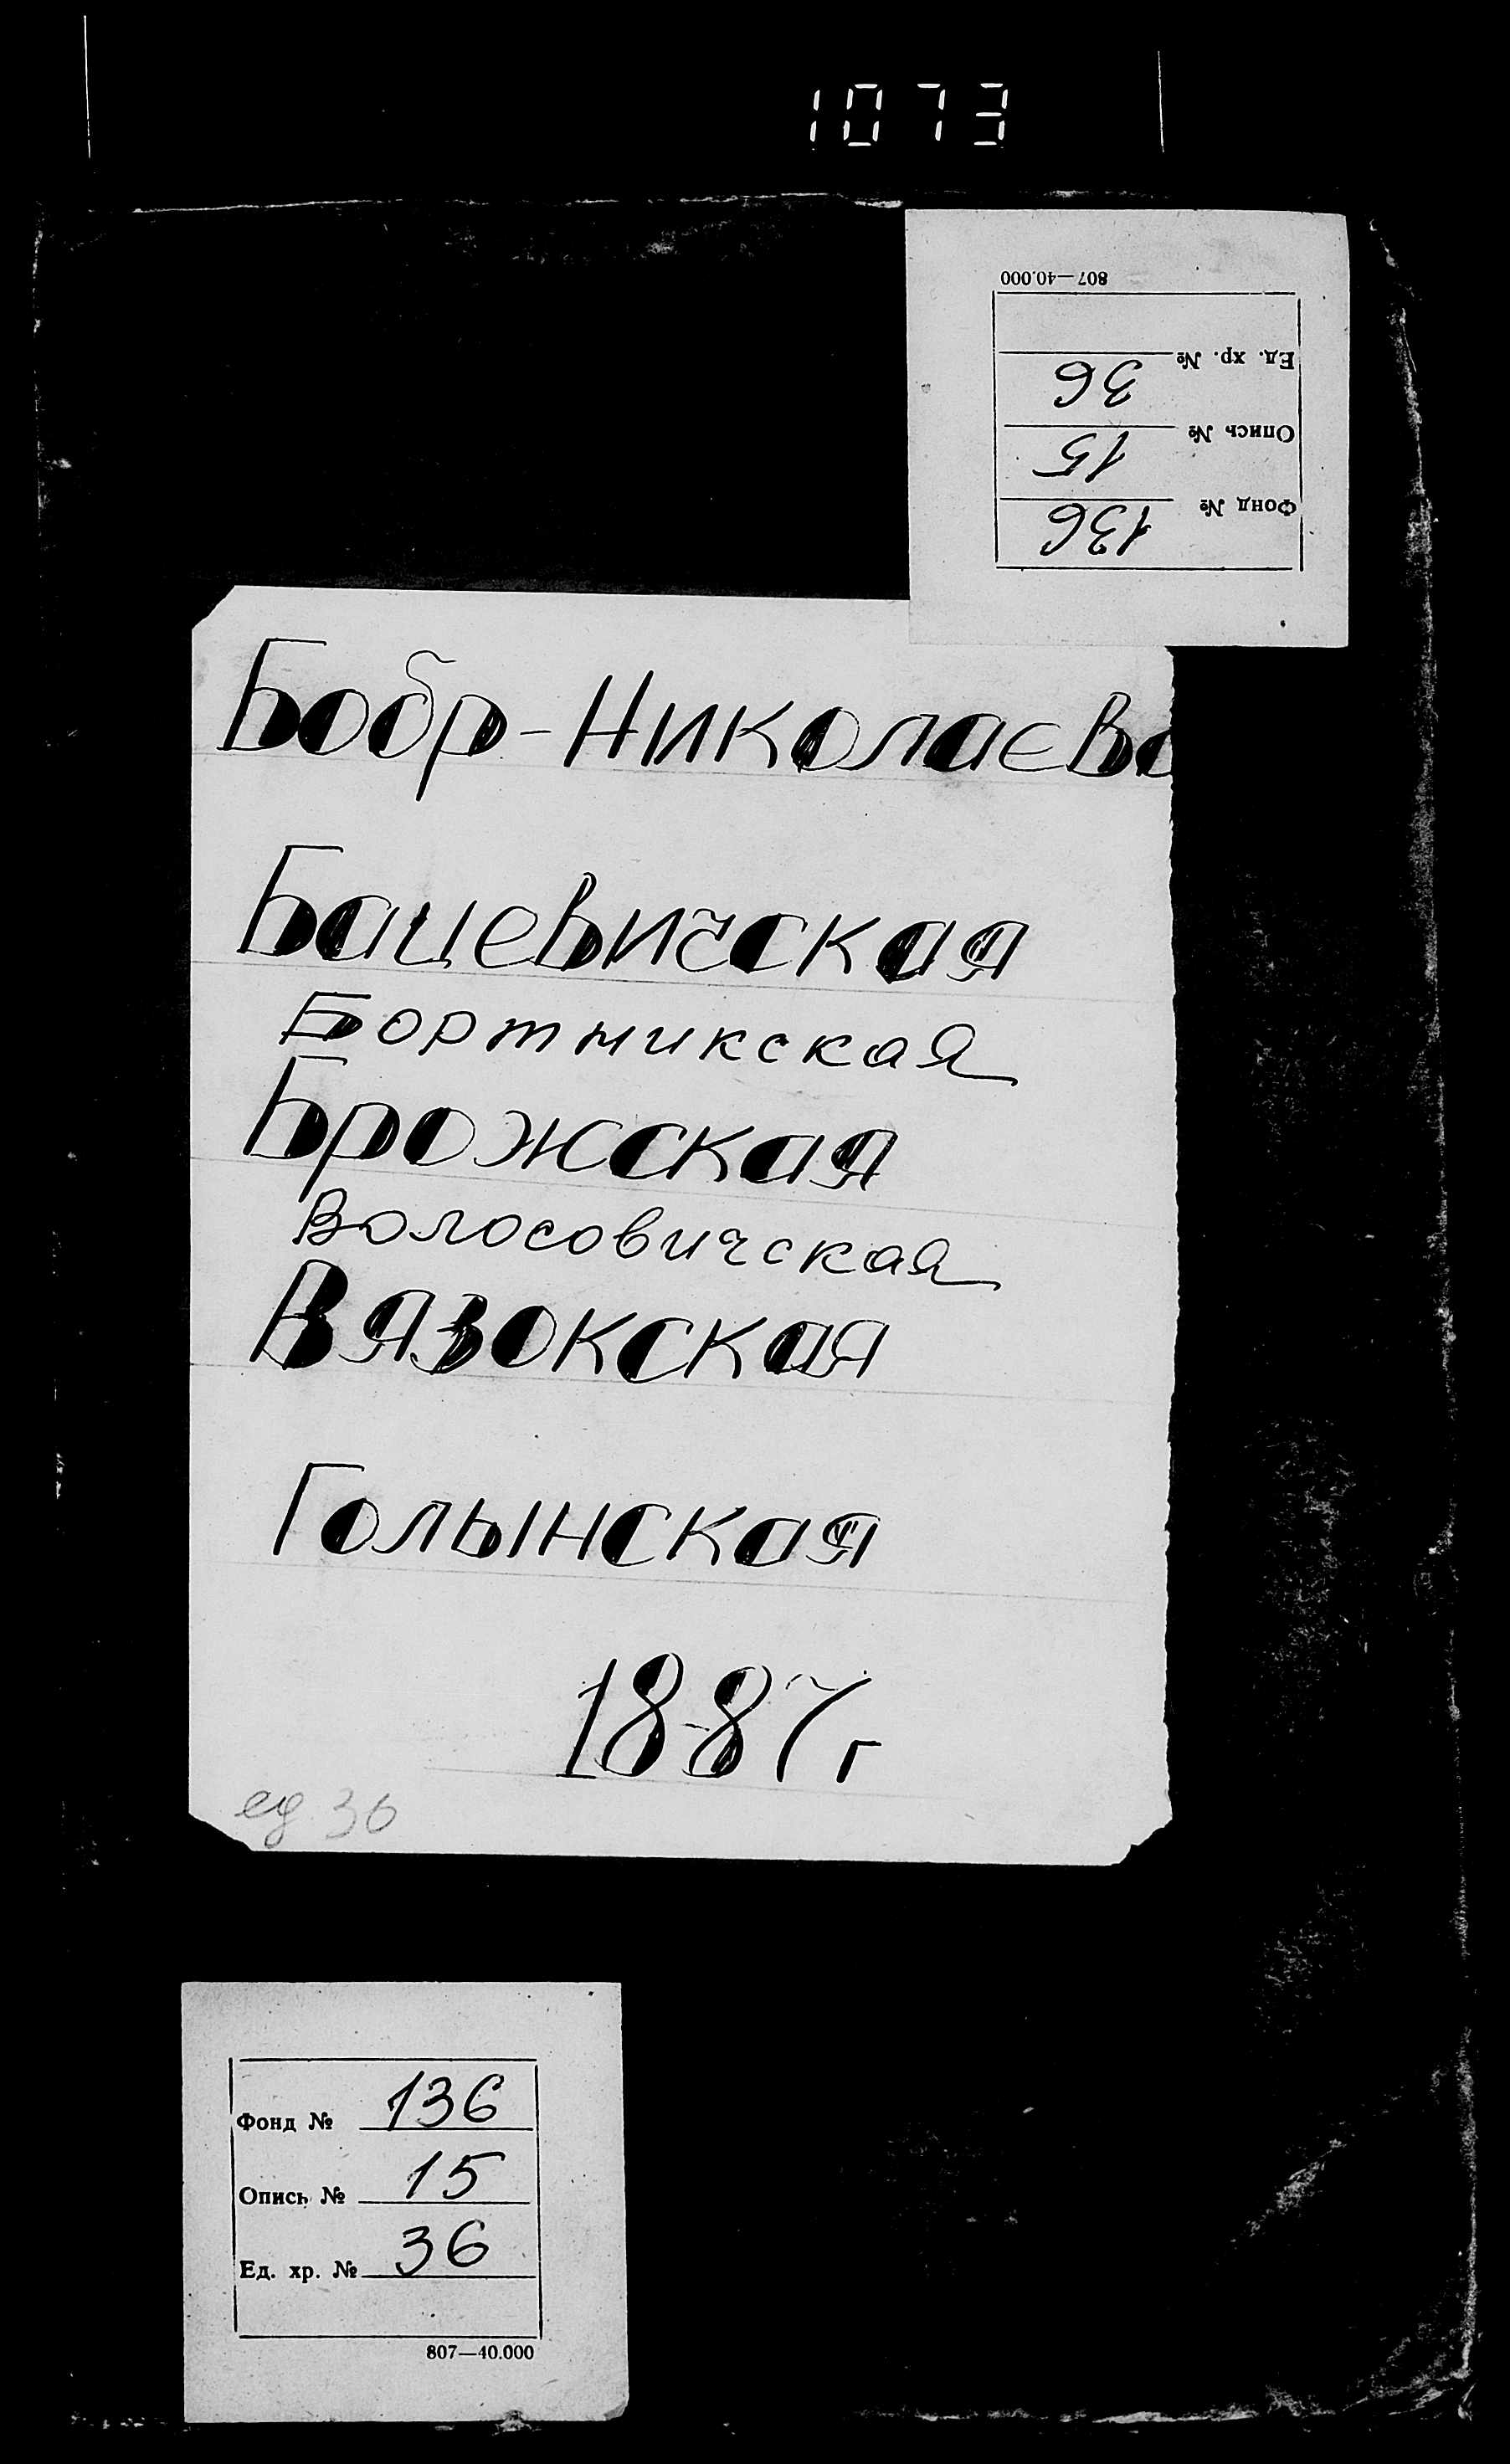 1073
807—40.000
Ед. хр. № 36
Опись № 15
Фонд № 136
Бобр-Николаево
Бацевичская
Бортникская
Брожская
Волосовичская
Вязокская
Голынская
1887 г
ед. 36
Фонд № 136
Опись № 15
Ед. хр. № 36
807—40.000